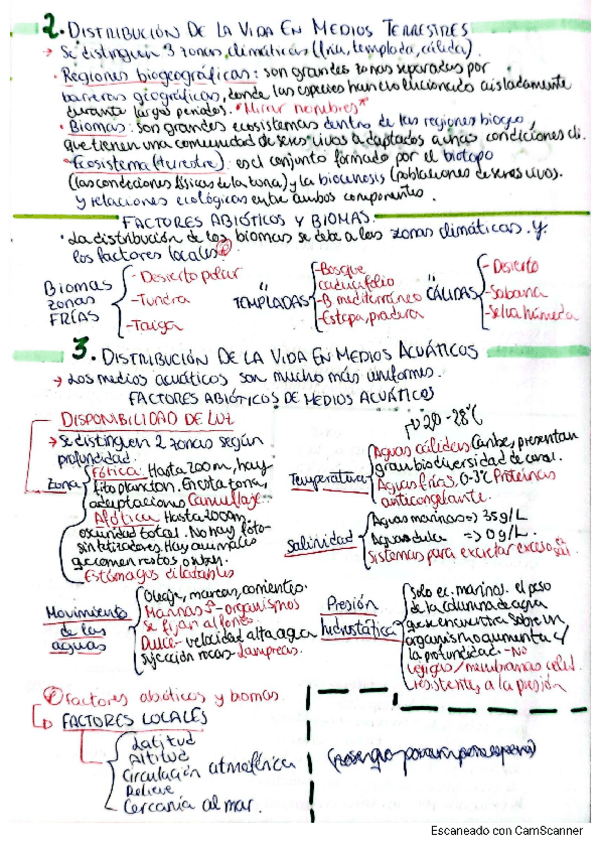 2. DISTRIBUCIÓN DE LA VIDA EN MEDIOS TERRESTRES
→ Se distinguen 3 zonas climáticas (fría, templada, cálida).
· Regiones biogeográficas: son grandes zonas separadas por
barreras geográficas, donde las especies han evolucionado aisladamente
durante largos periodos. *Mirar nombres*
· Biomas: son grandes ecosistemas dentro de las regiones biogeo,
que tienen una comunidad de seres vivos adaptados a unas condiciones cli.
· Ecosistema (terrestre): es el conjunto formado por el biotopo
(las condiciones físicas de la zona) y la biocenosis (poblaciones de seres vivos.
y relaciones ecológicas entre ambos componentes.
FACTORES ABIÓTICOS Y BIOMAS.
· La distribución de los biomas se debe a las zonas climáticas y
los factores locales.
BIOMAS ZONAS FRÍAS
- Desierto polar
- Tundra
- Taiga
" TEMPLADAS
- Bosque caducifolio
- B mediterráneo
- Estepa, pradera
" CÁLIDAS
- Desierto
- Sabana
- Selva húmeda
3. DISTRIBUCIÓN DE LA VIDA EN MEDIOS ACUÁTICOS
→ Los medios acuáticos, son mucho más uniformes.
FACTORES ABIÓTICOS DE MEDIOS ACUÁTICOS
DISPONIBILIDAD DE LUZ
→ Se distinguen 2 zonas según
profundidad.
Zona
Fótica. Hasta 200m, hay
fitoplancton. En esta zona,
adaptaciones Camuflaje.
Afótica. Hasta 200m
oscuridad total. No hay foto-
sintetizadores. Hay animales
que comen restos
Estómagos dilatables
Temperatura
20-28°C
Aguas cálidas Caribe, presentan
gran biodiversidad de coral.
Aguas frías. 0-3°C Proteínas
anticongelante.
Salinidad
Aguas marinas => 35g/L
Aguas dulce => 0g/L
Sistemas para excretar exceso sal.
Movimiento de las aguas
Oleaje, mareas, corrientes.
Marinas - organismos
se fijan al fondo.
Dulce - velocidad alta agua
sujección rocas - Lampreas.
Presión hidrostática
Solo ec. marinos. el peso
de la columna de agua
que se encuentra sobre un
organismo aumenta
la profundidad. - No
vejigas/membranas celul.
resistentes a la presión
Factores abióticos y biomas.
FACTORES LOCALES
Latitud
Altitud
Circulación atmosférica
Relieve
Cercanía al mar.
Escaneado con CamScanner